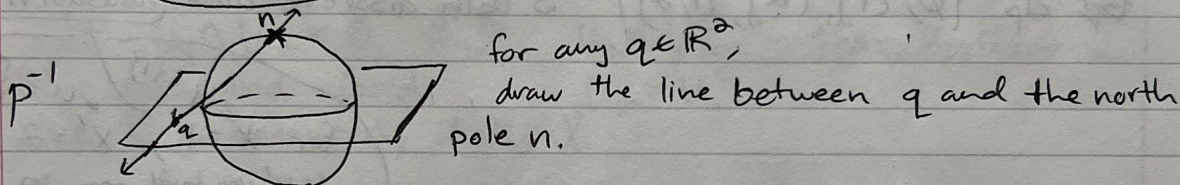 n
for any q ∈ ℝ²,
p⁻¹
draw the line between q and the north
q
pole n.